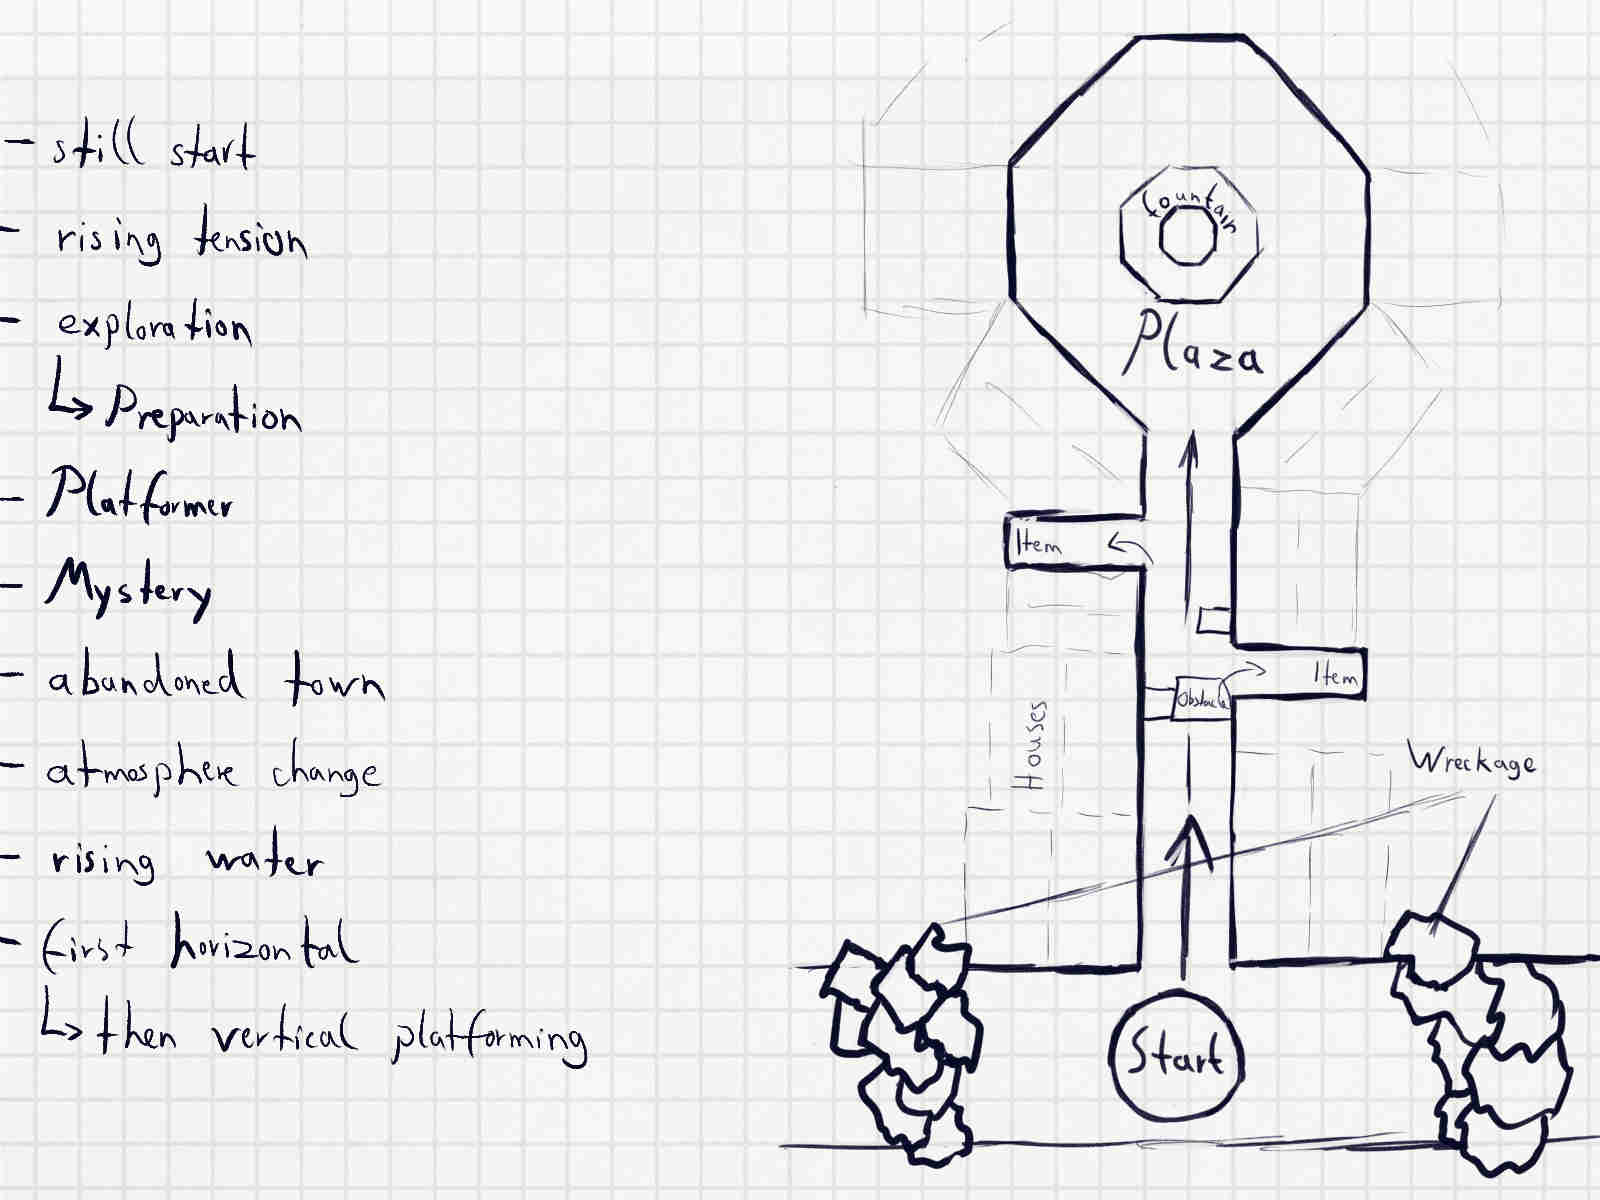 - still start
- rising tension
- exploration
↳ Preparation
- Platformer
- Mystery
- abandoned town
- atmosphere change
- rising water
- first horizontal
↳ then vertical platforming
fountain
Plaza
Item
Item
Obstacle
Houses
Wreckage
Start